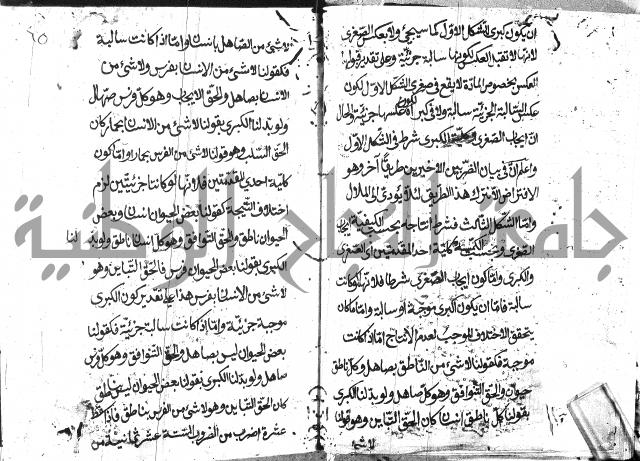 ان يكون كبرى للشكل الاول كما سيجيء ولا بعكس الصغرى
لانها لا تقبل العكس لكونها سالبة جزئية وعلى تقدير قبولها
العكس بخصوص المادة لا يقع في صغرى الشكل الاول لكون
عكس السالبة الجزئية سالبة ولا في كبراه لكون عكسها جزئية والحال
ان ايجاب الصغرى وكلية الكبرى شرط في الشكل الاول
واعلم ان في بيان الضربين الاخيرين طريقا آخر وهو
الافتراض لا نترك هذا الطريق لئلا يؤدي الى الملال
واما الشكل الثالث فشرط انتاجه بحسب الكيفية ايجاب
الصغرى وبحسب الكمية كلية احد المقدمتين اى الصغرى
والكبرى واما كون ايجاب الصغرى شرطا فلانها لو كانت
سالبة فاما ان يكون الكبرى موجبة او سالبة واما ما كان
يتحقق الاختلاف الموجب لعدم الانتاج اما اذا كانت
موجبة فكقولنا لا شئ من الناطق بصاهل وكل ناطق
حيوان والحق التوافق وهو كل صاهل حيوان ولو بدلنا الكبرى
بقولنا كل ناطق انسان كان الحق التباين وهو قولنا
لا شئ
لا شئ من الصاهل بانسان واما اذا كانت سالبة
فكقولنا لا شئ من الانسان بفرس ولا شئ من
الانسان بصاهل والحق الايجاب وهو كل فرس صهال
ولو بدلنا الكبرى بقولنا لا شئ من الانسان بحمار كان
الحق السلب وهو قولنا لا شئ من الفرس بحمار واما كون
كلية احدى المقدمتين فلانهما لو كانتا جزئيتين لزم
اختلاف النتيجة كقولنا بعض الحيوان انسان وبعض
الحيوان ناطق والحق التوافق وهو كل انسان ناطق ولو بدلنا
الكبرى بقولنا بعض الحيوان فرس فالحق التباين وهو
لا شئ من الانسان بفرس هذا على تقدير كون الكبرى
موجبة جزئية واما اذا كانت سالبة جزئية فكقولنا
بعض الحيوان ليس بصاهل والحق التوافق وهو كل فرس
صاهل ولو بدلنا الكبرى بقولنا بعض الحيوان ليس بناطق
كان الحق التباين وهو لا شئ من الفرس بناطق فاذا سقط
عشرة اضرب من الضروب الستة عشر ثمانية من
جامعة النجاح الوطنية